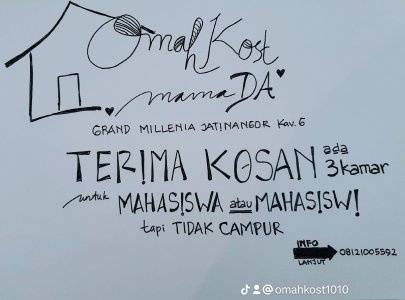 Omah Kost
mama DA
GRAND MILLENIA JATINANGOR Kav. 6
TERIMA KOSAN ada 3 kamar
untuk MAHASISWA atau MAHASISWI
tapi TIDAK CAMPUR
INFO LANJUT 08121005592
@omahkost1010